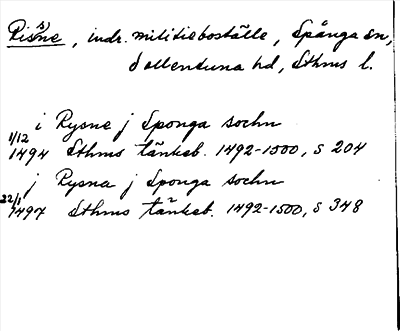 Risne, indr. militieboställe, Spånga sn,
Sollentuna hd, Sthms l.
i Rysne j Sponga sochn
1/12 1494 Sthms tänkeb. 1492-1500, s 204
j Rysna j Sponga sochn
22/1 1497 Sthms tänkeb. 1492-1500, s 348